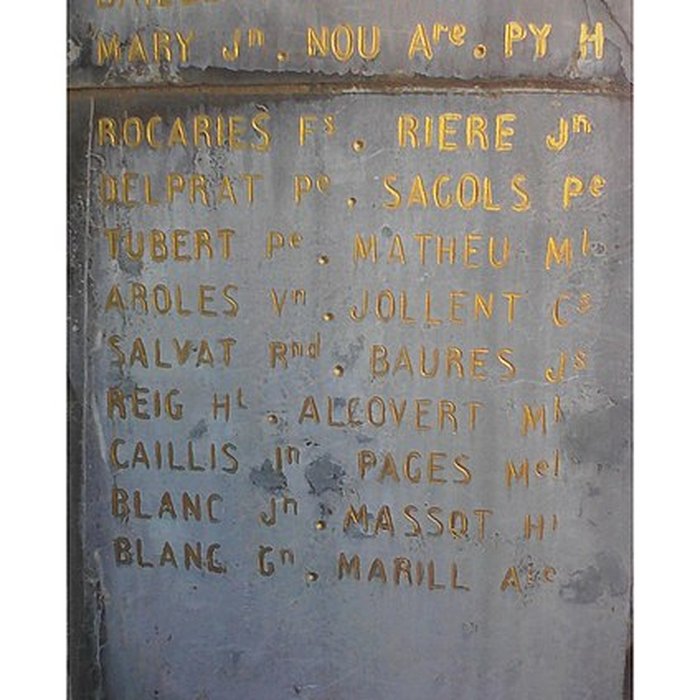 MARY Jn . NOU Are . PY H
ROCARIES Fs . RIERE Jn
DELPRAT Pe . SAGOLS Pe
TUBERT Pe . MATHEU Ml
AROLES Vn . JOLLENT Cs
SALVAT Rnd . BAURES Js
REIG Ht . ALCOVERT Ml
CAILLIS Jn PAGES Mel
BLANC Jn . MASSOT
BLANC Gn . MARILL Are